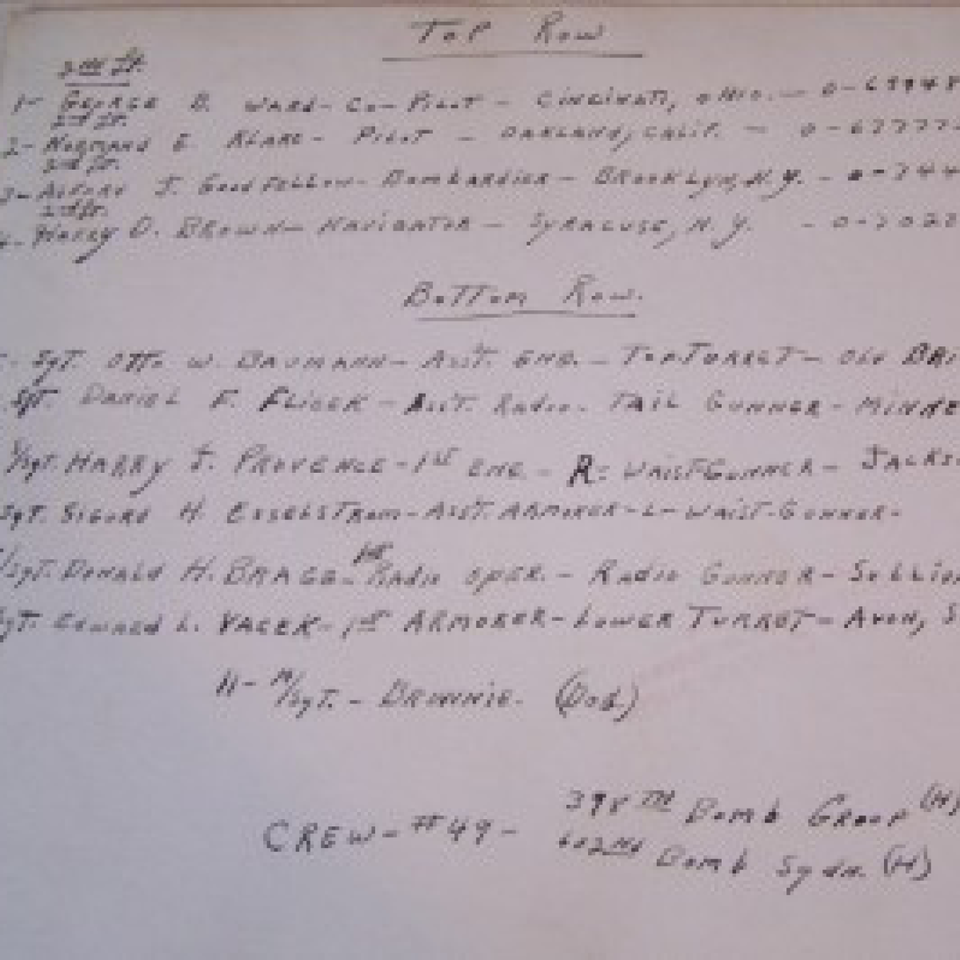 Top Row
2nd Lt.
1- George B. Ward- Co-Pilot - Cincinati, Ohio. - 0-69948
2nd Lt.
2- Normand E. Klare- Pilot - Oakland, Calif. - 0-67777
2nd Lt.
3- J. Goodfellow- Bombardier- Brooklyn, N.Y. - 0-744
2nd Lt.
4- Harry D. Brown- Navigator - Syracuse, N.Y. - 0-2022
Bottom Row.
- Sgt. Otto W. Baumann- Asst. Eng. - Top-Turret- Old Bri
Sgt. Daniel F. Flicek - Asst. Radio- Tail Gunner- Minde
T/Sgt. Harry J. Provence- 1st Eng. - R: Waist-Gunner- Jacks
Sgt. Sigurd H. Esselstrom- Asst. Armorer-L-Waist-Gunner-
1st
T/Sgt. Donald H. Bragg- Radio Oper. - Radio Gunnor- Sullivan
Sgt. Edward L. Vacek- 1st Armorer- Lower Turret- Avon, S
11- M/Sgt. - Brownie. (Dog)
Crew- #49- 398th Bomb Group (H)
602nd Bomb Sqdn. (H)